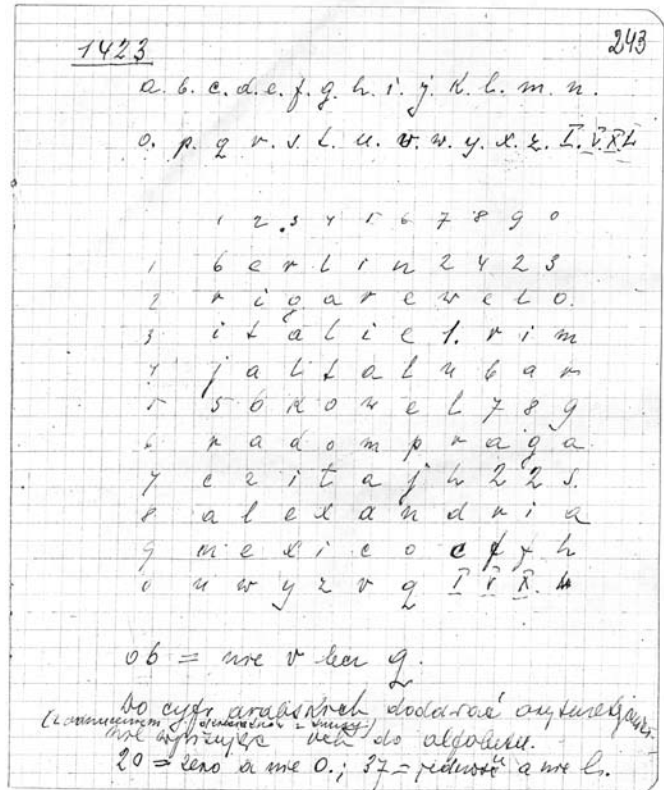 1423 243
a. b. c. d. e. f. g. h. i. j. k. l. m. n.
o. p. q r. s. t. u. v. w. y. x. z. I. V. X. L
1 2 3 4 5 6 7 8 9 0
1 b e r l i n 2 4 2 3
2 r i g a r e w e l 0.
3 i t a l i e 1. r i m
4 j a l t a l u b a r
5 5 6 k o w e l 7 8 9
6 r a d o m p r a g a
7 c z i t a j h 2 2 s.
8 a l e x a n d r i a
9 m e x i c o c f f h
0 u w y z v q I V X. L
06 = nie v lecz q.
Do cyfr arabskich dodawać
nie do alfabetu.
20 = zero a nie o.; 37 = jedność a nie l.